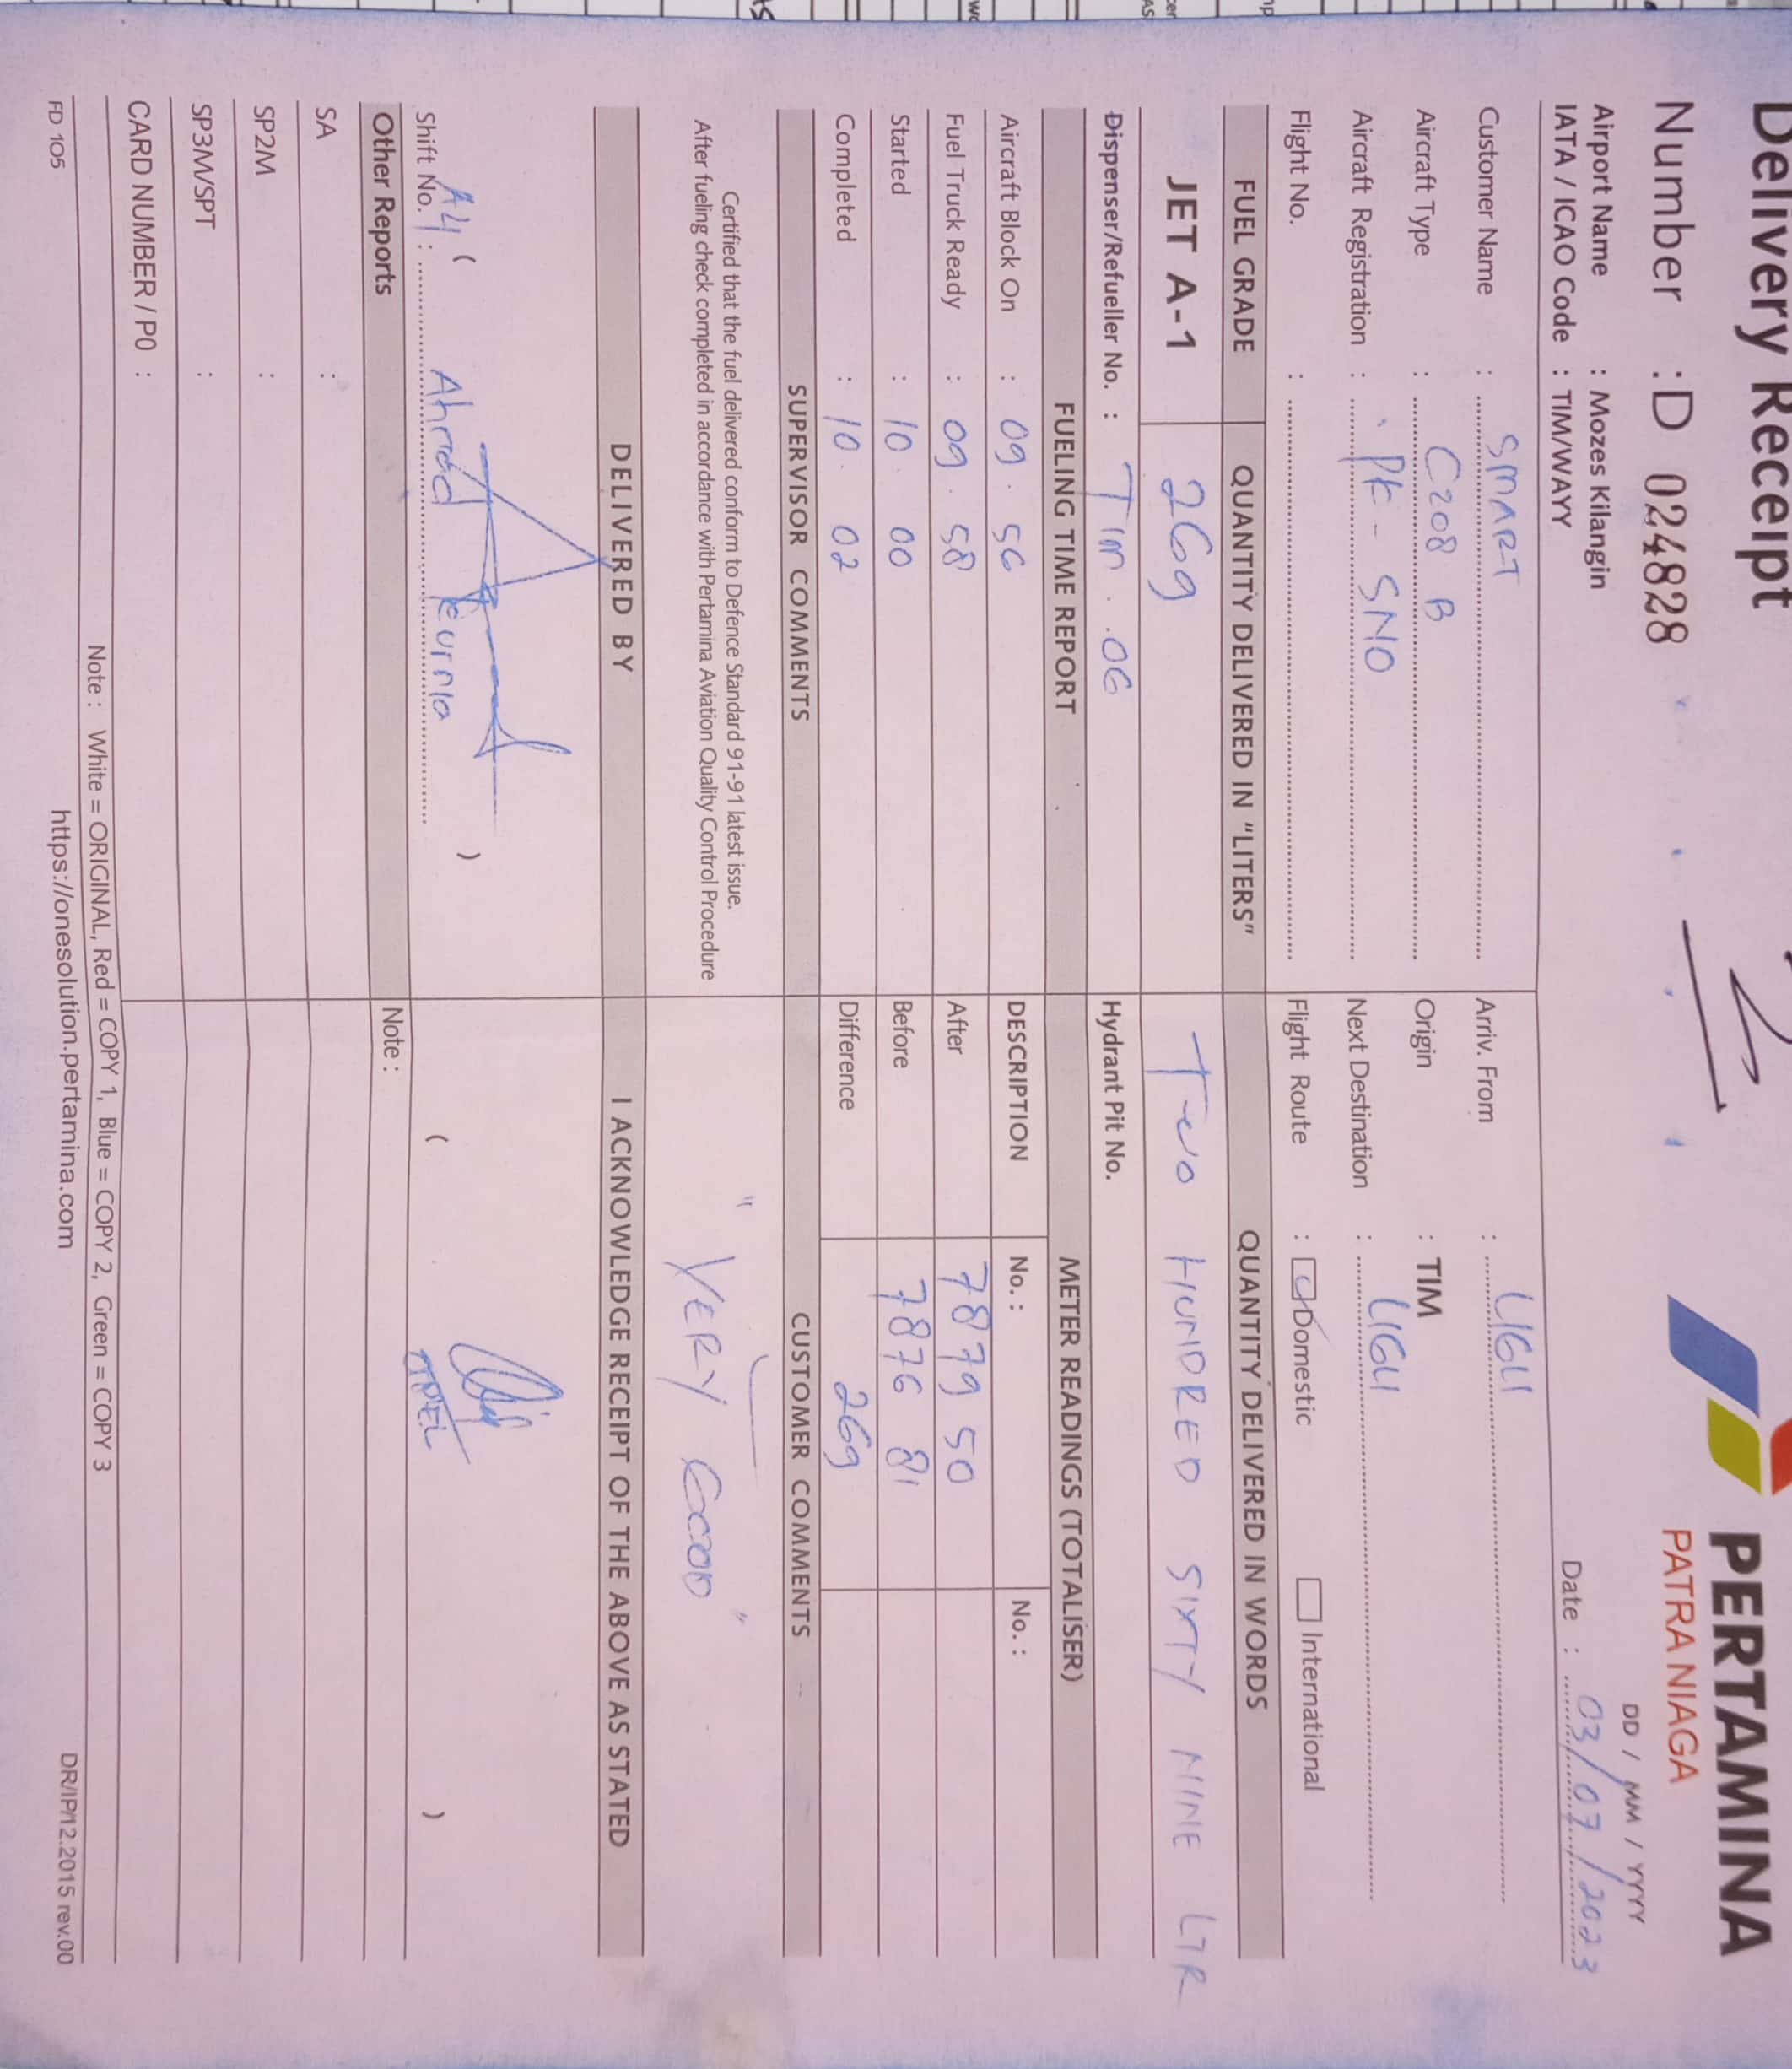 Delivery Receipt
PERTAMINA
PATRA NIAGA
Number : D 0248828
DD / MM / YYYY
Airport Name : Mozes Kilangin
IATA / ICAO Code : TIM/WAYY
Date : 03/07/2023
Customer Name : SMART
Arriv. From :
Aircraft Type : C208 B
Origin : TIM
Aircraft Registration : PK - SNO
Next Destination :
Flight No. :
Flight Route : Domestic International
FUEL GRADE QUANTITY DELIVERED IN "LITERS" QUANTITY DELIVERED IN WORDS
JET A-1 269 TWO HUNDRED SIXTY NINE LTR
Dispenser/Refueller No. : TIM . 06 Hydrant Pit No.
FUELING TIME REPORT METER READINGS (TOTALISER)
Aircraft Block On : 09 . 56 DESCRIPTION No. : No. :
Fuel Truck Ready : 09 . 58 After 7879 50
Started : 10 . 00 Before 7876 81
Completed : 10 . 02 Difference 269
SUPERVISOR COMMENTS CUSTOMER COMMENTS
Certified that the fuel delivered conform to Defence Standard 91-91 latest issue.
After fueling check completed in accordance with Pertamina Aviation Quality Control Procedure
" VERY GOOD "
DELIVERED BY I ACKNOWLEDGE RECEIPT OF THE ABOVE AS STATED
Shift No. : ( Ahmad Kurnia ) ( )
Other Reports Note :
SA :
SP2M :
SP3M/SPT :
CARD NUMBER / PO :
Note : White = ORIGINAL, Red = COPY 1, Blue = COPY 2, Green = COPY 3
FD 105 https://onesolution.pertamina.com DR/IP/12.2015 rev.00